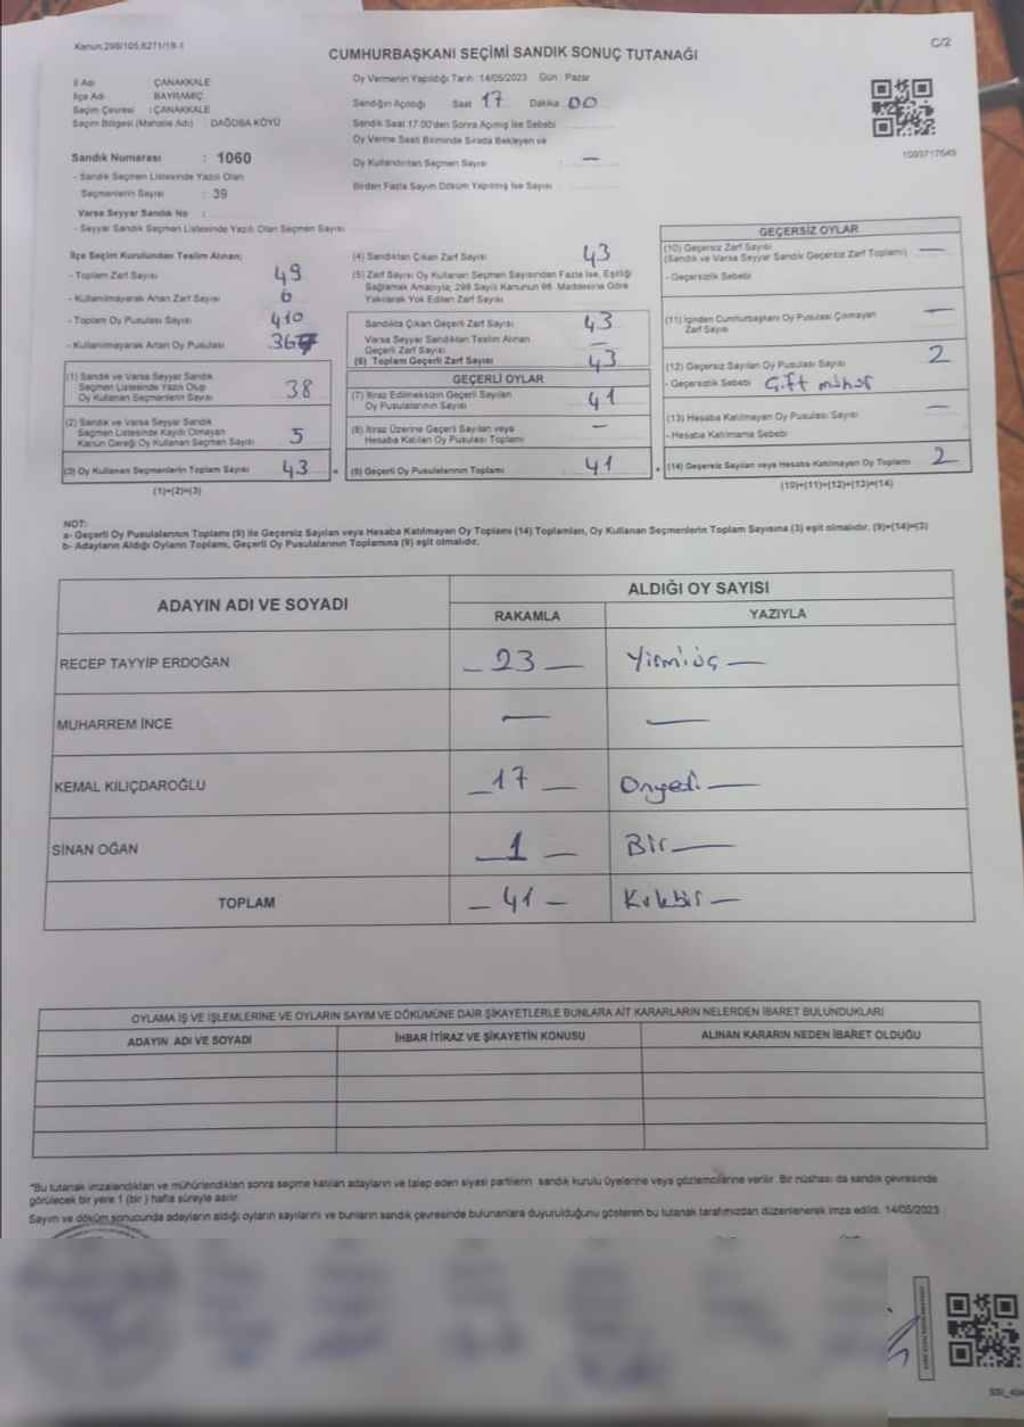 Kanun:298/105,6271/19-1
C/2
CUMHURBAŞKANI SEÇİMİ SANDIK SONUÇ TUTANAĞI
İl Adı : ÇANAKKALE
İlçe Adı : BAYRAMİÇ
Seçim Çevresi : ÇANAKKALE
Seçim Bölgesi (Mahalle Adı) : DAĞOBA KÖYÜ
Sandık Numarası : 1060
- Sandık Seçmen Listesinde Yazılı Olan
Seçmenlerin Sayısı : 39
Varsa Seyyar Sandık No :
- Seyyar Sandık Seçmen Listesinde Yazılı Olan Seçmen Sayısı
Oy Vermenin Yapıldığı Tarih: 14/05/2023 Gün : Pazar
Sandığın Açıldığı Saat 17 Dakika 00
Sandık Saat 17.00'den Sonra Açılmış İse Sebebi
Oy Verme Saati Bitiminde Sırada Bekleyen ve
Oy Kullandırılan Seçmen Sayısı : —
Birden Fazla Sayım Döküm Yapılmış İse Sayısı
1093717649
İlçe Seçim Kurulundan Teslim Alınan;
- Toplam Zarf Sayısı 49
- Kullanılmayarak Artan Zarf Sayısı 6
- Toplam Oy Pusulası Sayısı 410
- Kullanılmayarak Artan Oy Pusulası 367
(1) Sandık ve Varsa Seyyar Sandık
Seçmen Listesinde Yazılı Olup
Oy Kullanan Seçmenlerin Sayısı 38
(2) Sandık ve Varsa Seyyar Sandık
Seçmen Listesinde Kayıtlı Olmayan
Kanun Gereği Oy Kullanan Seçmen Sayısı 5
(3) Oy Kullanan Seçmenlerin Toplam Sayısı 43
(1)+(2)=(3)
(4) Sandıktan Çıkan Zarf Sayısı 43
(5) Zarf Sayısı Oy Kullanan Seçmen Sayısından Fazla İse, Eşitliği
Sağlamak Amacıyla, 298 Sayılı Kanunun 98. Maddesine Göre
Yakılarak Yok Edilen Zarf Sayısı
Sandıkta Çıkan Geçerli Zarf Sayısı 43
Varsa Seyyar Sandıktan Teslim Alınan
Geçerli Zarf Sayısı —
(6) Toplam Geçerli Zarf Sayısı 43
GEÇERLİ OYLAR
(7) İtiraz Edilmeksizin Geçerli Sayılan
Oy Pusulalarının Sayısı 41
(8) İtiraz Üzerine Geçerli Sayılan veya
Hesaba Katılan Oy Pusulası Toplamı —
(9) Geçerli Oy Pusulalarının Toplamı 41
GEÇERSİZ OYLAR
(10) Geçersiz Zarf Sayısı
(Sandık ve Varsa Seyyar Sandık Geçersiz Zarf Toplamı) —
- Geçersizlik Sebebi
(11) İçinden Cumhurbaşkanı Oy Pusulası Çıkmayan
Zarf Sayısı —
(12) Geçersiz Sayılan Oy Pusulası Sayısı 2
- Geçersizlik Sebebi Çift mühür
(13) Hesaba Katılmayan Oy Pusulası Sayısı —
- Hesaba Katılmama Sebebi
(14) Geçersiz Sayılan veya Hesaba Katılmayan Oy Toplamı 2
(10)+(11)+(12)+(13)=(14)
NOT:
a- Geçerli Oy Pusulalarının Toplamı (9) ile Geçersiz Sayılan veya Hesaba Katılmayan Oy Toplamı (14) Toplamları, Oy Kullanan Seçmenlerin Toplam Sayısına (3) eşit olmalıdır. (9)+(14)=(3)
b- Adayların Aldığı Oyların Toplamı, Geçerli Oy Pusulalarının Toplamına (9) eşit olmalıdır.
ADAYIN ADI VE SOYADI
ALDIĞI OY SAYISI
RAKAMLA YAZIYLA
RECEP TAYYİP ERDOĞAN — 23 — Yirmiüç —
MUHARREM İNCE — —
KEMAL KILIÇDAROĞLU — 17 — Onyedi —
SİNAN OĞAN — 1 — Bir —
TOPLAM — 41 — Kırkbir —
OYLAMA İŞ VE İŞLEMLERİNE VE OYLARIN SAYIM VE DÖKÜMÜNE DAİR ŞİKAYETLERLE BUNLARA AİT KARARLARIN NELERDEN İBARET BULUNDUKLARI
ADAYIN ADI VE SOYADI İHBAR İTİRAZ VE ŞİKAYETİN KONUSU ALINAN KARARIN NEDEN İBARET OLDUĞU
"Bu tutanak imzalandıktan ve mühürlendikten sonra seçime katılan adayların ve talep eden siyasi partilerin sandık kurulu üyelerine veya gözlemcilerine verilir. Bir nüshası da sandık çevresinde
görülecek bir yere 1 (bir ) hafta süreyle asılır.
Sayım ve döküm sonucunda adayların aldığı oyların sayılarını ve bunların sandık çevresinde bulunanlara duyurulduğunu gösteren bu tutanak tarafımızdan düzenlenerek imza edildi. 14/05/2023